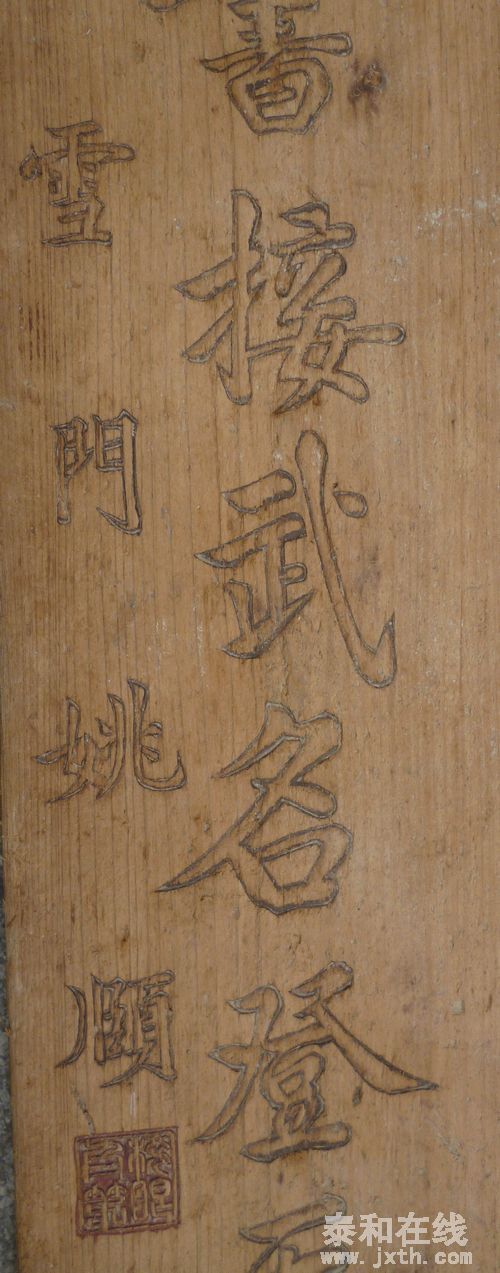 書接武名登
雪門姚頤
泰和在线
www.jxth.com